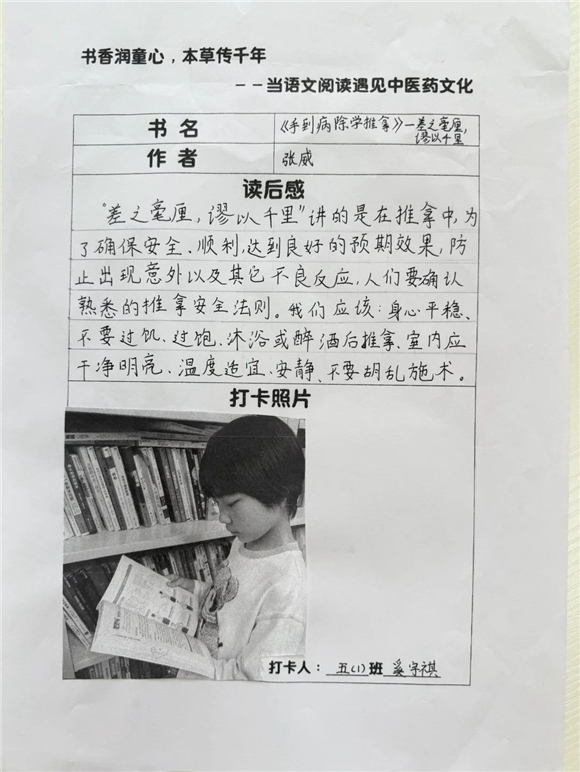 书香润童心，本草传千年
——当语文阅读遇见中医药文化
书 名
《手到病除学推拿》—差之毫厘，
谬以千里
作 者
张威
读后感
“差之毫厘，谬以千里”讲的是在推拿中，为
了确保安全、顺利，达到良好的预期效果，防
止出现意外以及其它不良反应，人们要确认
熟悉的推拿安全法则。我们应该：身心平稳、
不要过饥、过饱、沐浴或醉酒后推拿、室内应
干净明亮、温度适宜、安静、不要胡乱施术。
打卡照片
打卡人： 五（1）班 奚宇祺